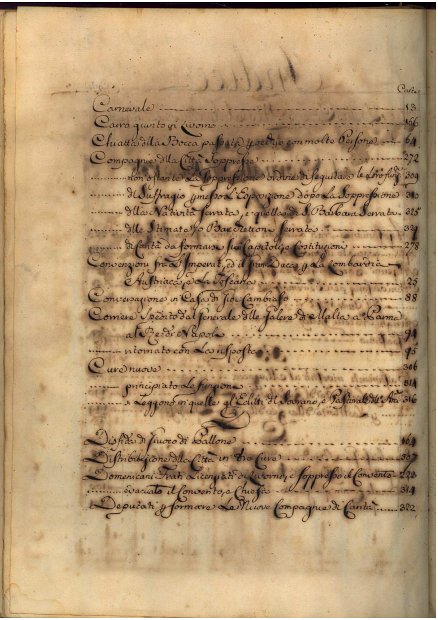 Carte
Carnevale 13
Cairo giunto in Livorno 166
Chiatta della Bocca passata con molte Persone 64
Compagnie della Città Soppresse 272
non ostante la soppressione ordine di seguitare le
di Suffragio per l'Esposizione dopo la Soppressione 310
della Natività Serrata, e quella di S. Barbara Serrata 325
delle Stimate, S. Bar Serrata
di Carità da formarsi suoi Capitoli, e Costituzioni 278
Convenzioni fra l'Imperat. ed il Gran Duca per la Lombardia
Austriaca, e la Toscana 25
Conversazione in Casa di Cambiaso 88
Corriere Spedito dal Generale delle Galere di Malta a Parma
al Re di Napoli 94
ritornato con la risposta 95
Cure nuove 306
principiato le funzioni 314
si Leggono in quelle gl'Editti del Sovrano, e Pastorale dell' 316
Disfida di Giuoco di Pallone 164
Distribuzione della Città in Tre Cure 307
Domenicani Frati Licenziati di Livorno, e soppresso il Convento
evacuato il Convento, e Chiesa 314
Deputati per formare le Nuove Compagnie di Carità 322